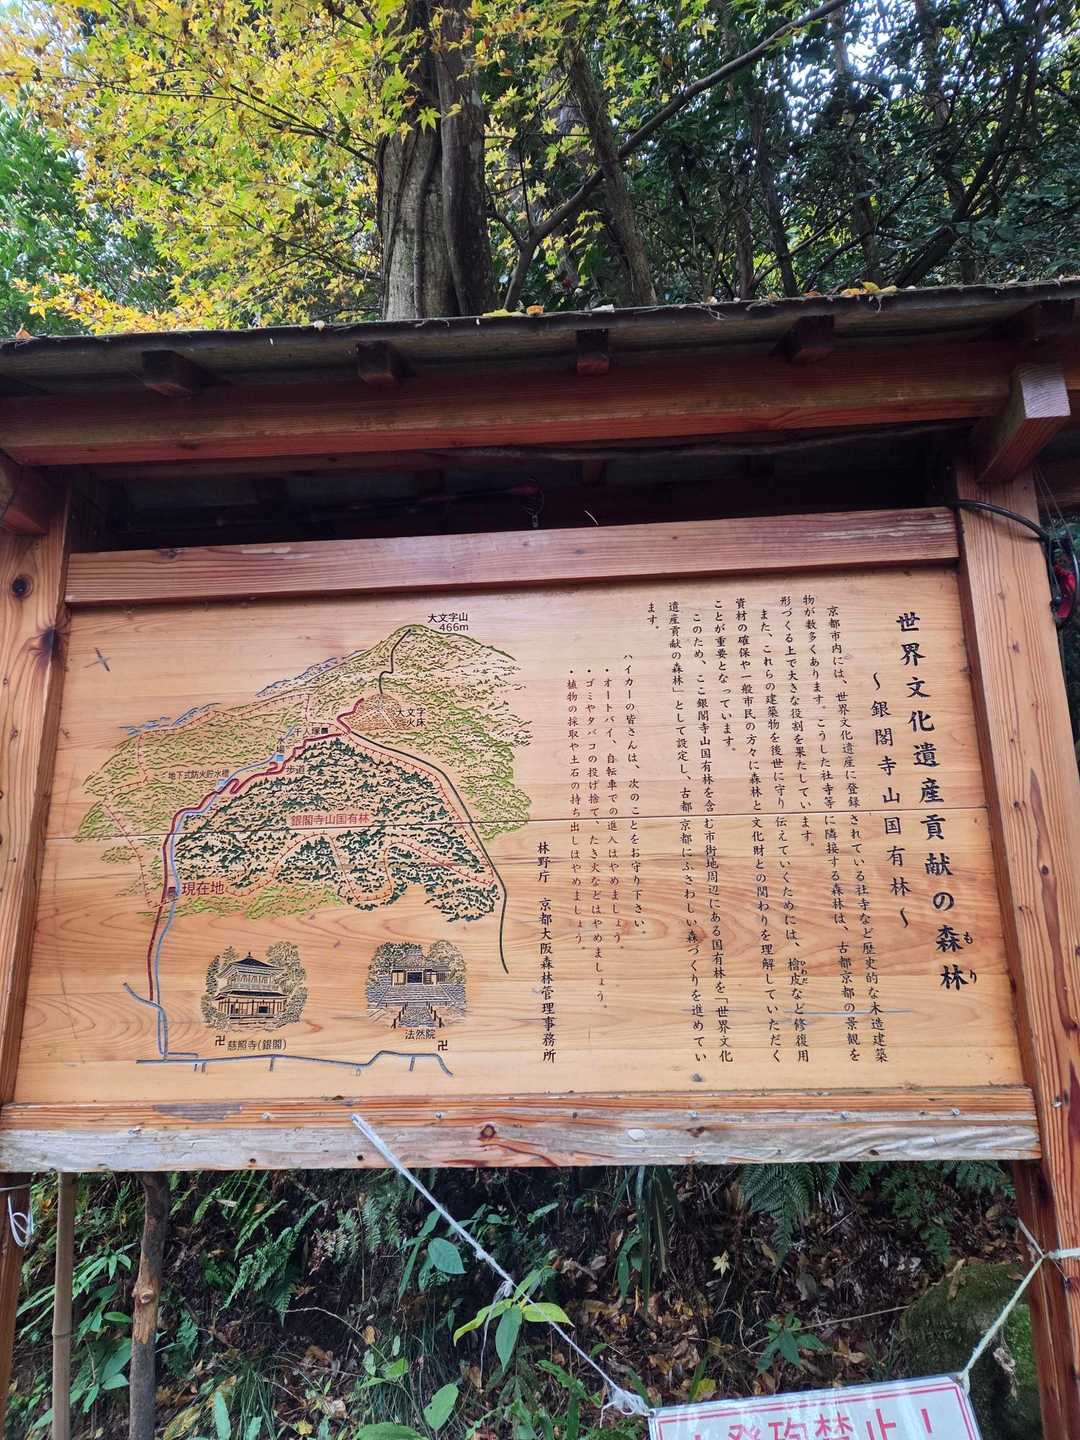 世界文化遺産貢献の森林
もり
～銀閣寺山国有林～
京都市内には、世界文化遺産に登録されている社寺など歴史的な木造建築
物が数多くあります。こうした社寺等に隣接する森林は、古都京都の景観を
形づくる上で大きな役割を果たしています。
また、これらの建築物を後世に守り伝えていくためには、檜皮など修復用
ひわだ
資材の確保や一般市民の方々に森林と文化財との関わりを理解していただく
ことが重要となっています。
このため、ここ銀閣寺山国有林を含む市街地周辺にある国有林を「世界文化
遺産貢献の森林」として設定し、古都京都にふさわしい森づくりを進めてい
ます。
ハイカーの皆さんは、次のことをお守り下さい。
・オートバイ、自転車での進入はやめましょう。
・ゴミやタバコの投げ捨て、たき火などはやめましょう。
・植物の採取や土石の持ち出しはやめましょう。
林野庁 京都大阪森林管理事務所
大文字山
466m
大文字
火床
千人塚
歩道
地下式防火貯水槽
銀閣寺山国有林
現在地
卍 慈照寺(銀閣)
法然院
卍
禁止!